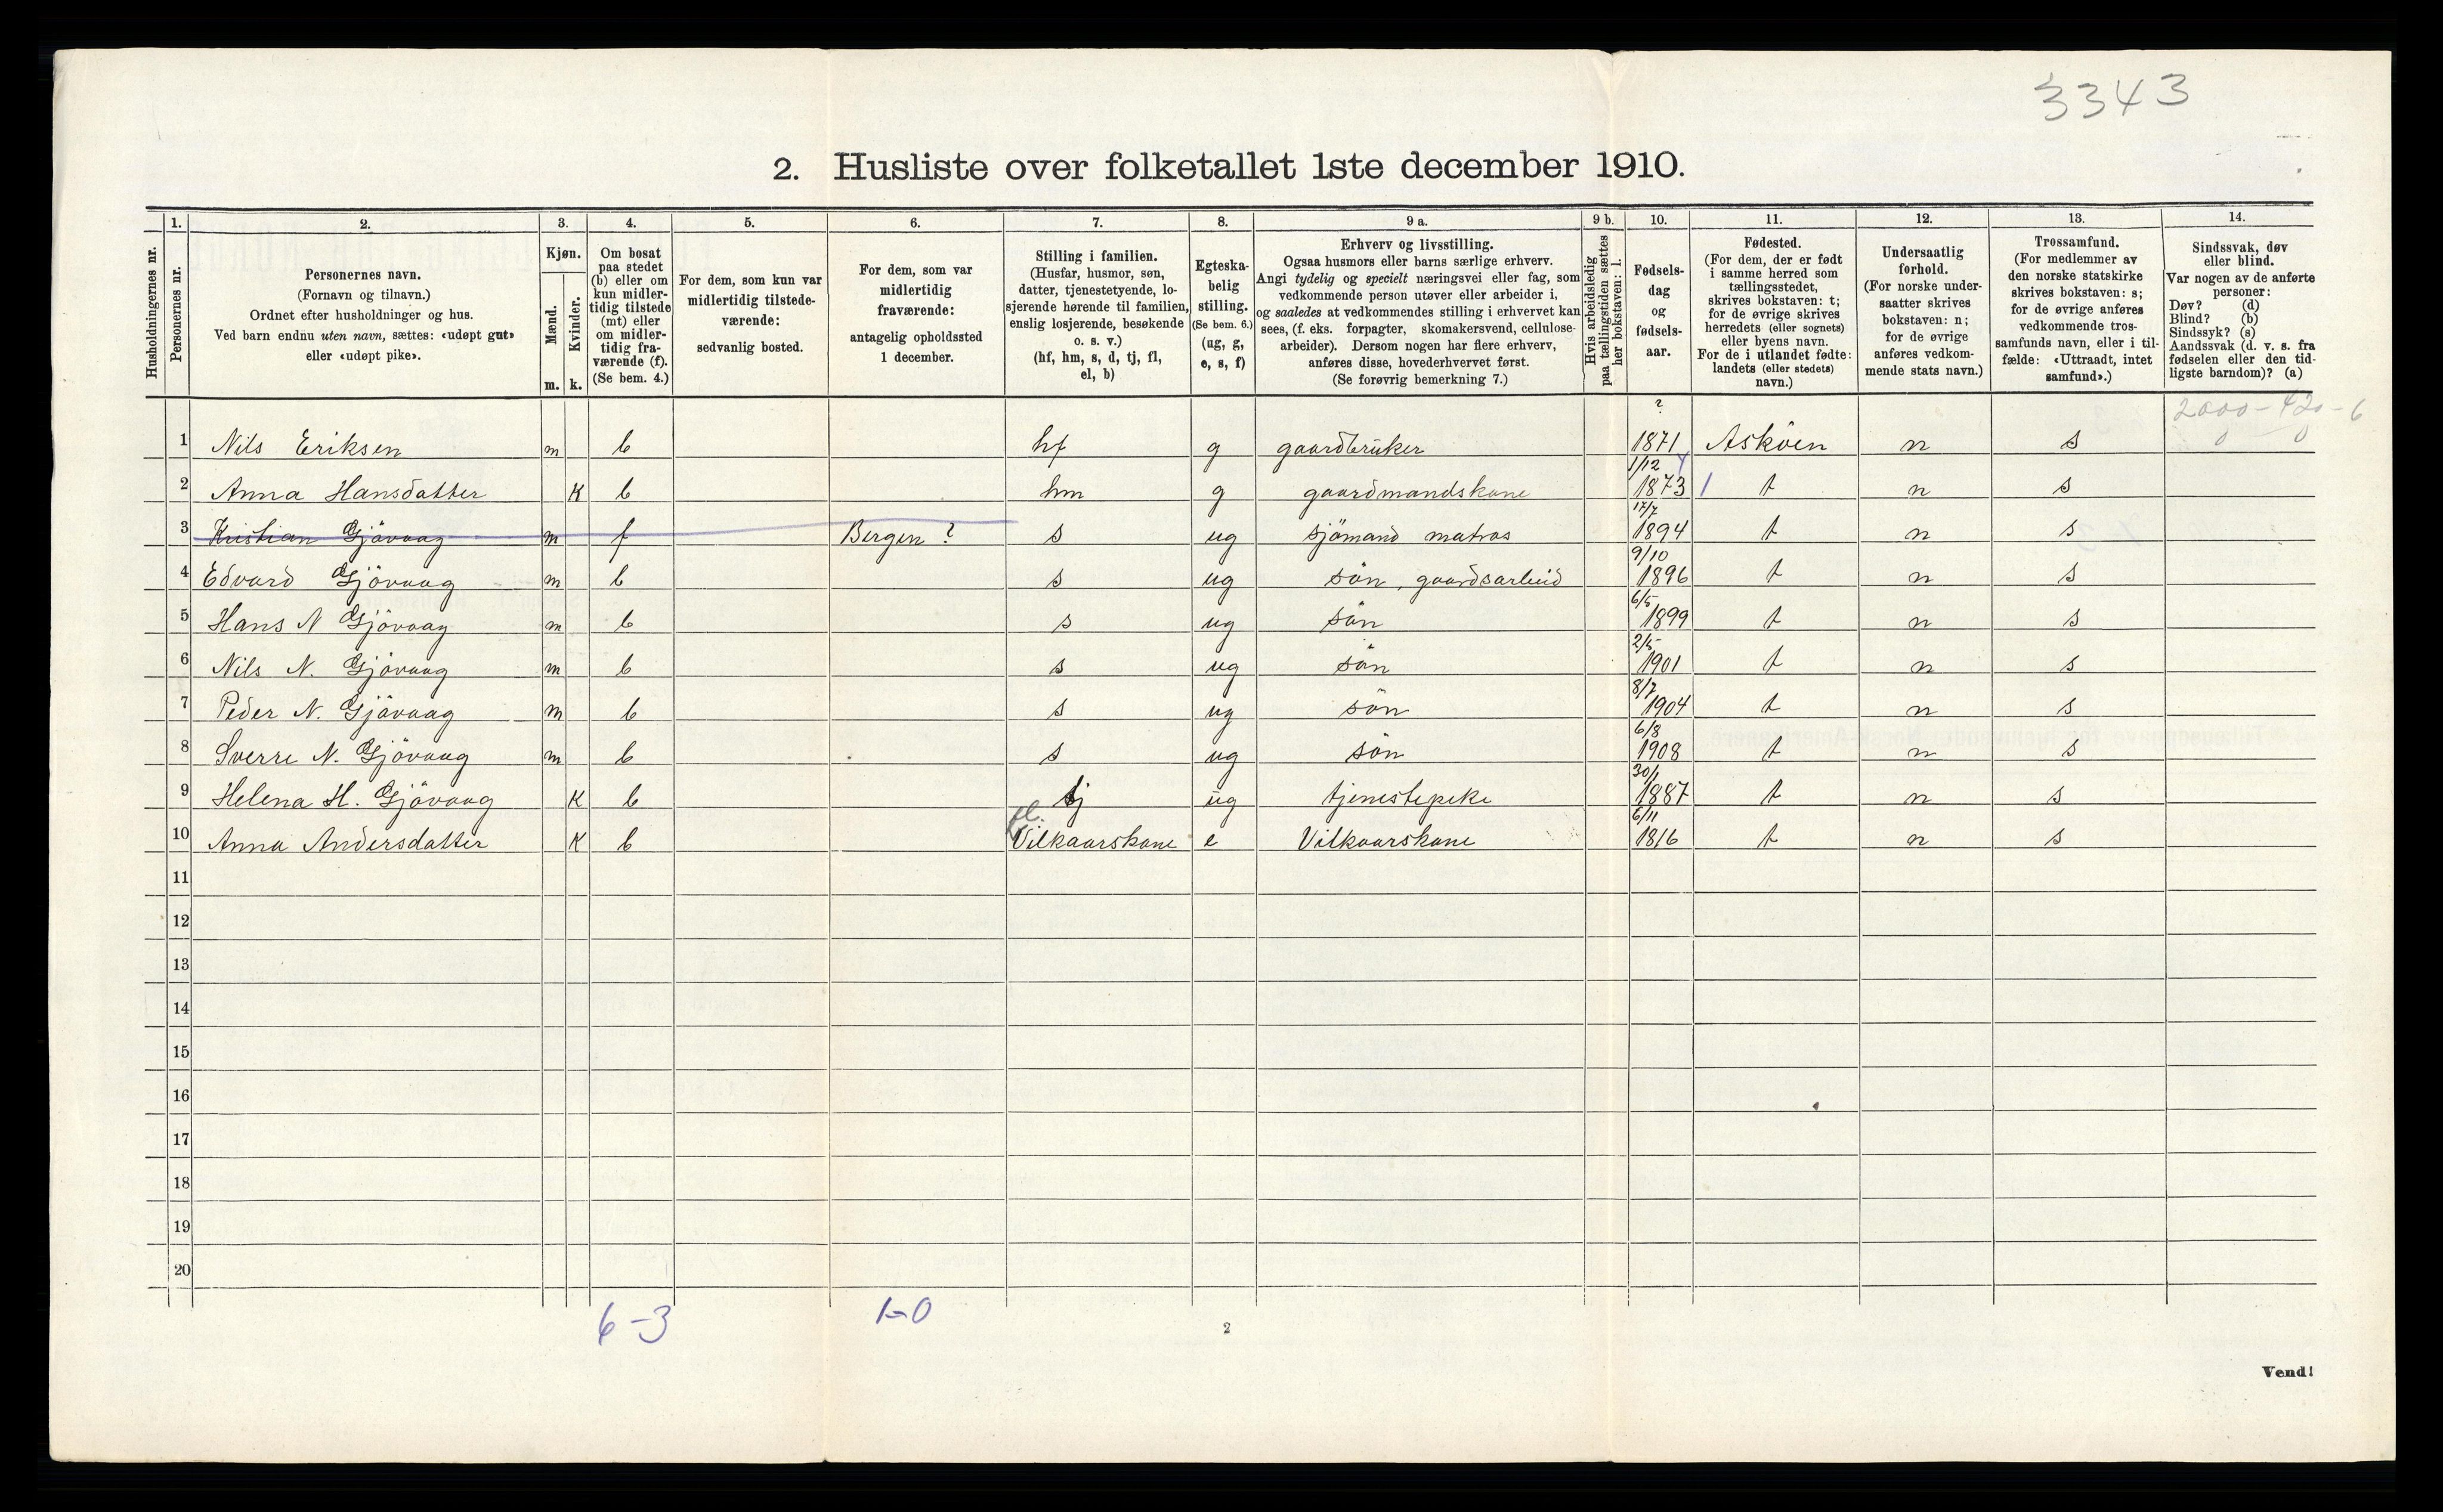 3343
2. Husliste over folketallet 1ste december 1910.
Husholdningernes nr.
1. Personernes nr.
2. Personernes navn. (Fornavn og tilnavn.) Ordnet efter husholdninger og hus. Ved barn endnu uten navn, sættes: «udøpt gut» eller «udøpt pike».
3. Kjøn. Mænd. m. Kvinder. k.
4. Om bosat paa stedet (b) eller om kun midlertidig tilstede (mt) eller om midlertidig fraværende (f). (Se bem. 4.)
5. For dem, som kun var midlertidig tilstedeværende: sedvanlig bosted.
6. For dem, som var midlertidig fraværende: antagelig opholdssted 1 december.
7. Stilling i familien. (Husfar, husmor, søn, datter, tjenestetyende, losjerende hørende til familien, enslig losjerende, besøkende o. s. v.) (hf, hm, s, d, tj, fl, el, b)
8. Egteskabelig stilling. (Se bem. 6.) (ug, g, e, s, f)
9 a. Erhverv og livsstilling. Ogsaa husmors eller barns særlige erhverv. Angi tydelig og specielt næringsvei eller fag, som vedkommende person utøver eller arbeider i, og saaledes at vedkommendes stilling i erhvervet kan sees, (f. eks. forpagter, skomakersvend, cellulosearbeider). Dersom nogen har flere erhverv, anføres disse, hovederhvervet først. (Se forøvrig bemerkning 7.)
9 b. Hvis arbeidsledig paa tællingstiden sættes her bokstaven: l.
10. Fødselsdag og fødselsaar.
11. Fødested. (For dem, der er født i samme herred som tællingsstedet, skrives bokstaven: t; for de øvrige skrives herredets (eller sognets) eller byens navn. For de i utlandet fødte: landets (eller stedets) navn.)
12. Undersaatlig forhold. (For norske undersaatter skrives bokstaven: n; for de øvrige anføres vedkommende stats navn.)
13. Trossamfund. (For medlemmer av den norske statskirke skrives bokstaven: s; for de øvrige anføres vedkommende trossamfunds navn, eller i tilfælde: «Uttraadt, intet samfund».)
14. Sindssvak, døv eller blind. Var nogen av de anførte personer: Døv? (d) Blind? (b) Sindssyk? (s) Aandssvak (d. v. s. fra fødselen eller den tidligste barndom)? (a)
2000-420-6
1 Nils Eriksen m b hf g gaardbruker ? 1871 Asköen n s
2 Anna Hansdatter K b hm g gaardmandskone 1/12 1873 t n s
3 Kristian Gjövaag m f Bergen? s ug sjömand matros 17/7 1894 t n s
4 Edvard Gjövaag m b s ug sön, gaardsarbeid 9/10 1896 t n s
5 Hans N Gjövaag m b s ug sön 6/5 1899 t n s
6 Nils N. Gjövaag m b s ug sön 2/5 1901 t n s
7 Peder N. Gjövaag m b s ug sön 8/7 1904 t n s
8 Sverre N. Gjövaag m b s ug sön 6/8 1908 t n s
9 Helena H. Gjövaag K b tj ug tjenestepeke 30/1 1887 t n s
10 Anna Andersdatter K b fl. Vilkaarskone e Vilkaarskone 6/11 1816 t n s
11
12
13
14
15
16
17
18
19
20
6-3 1-0
2
Vend!